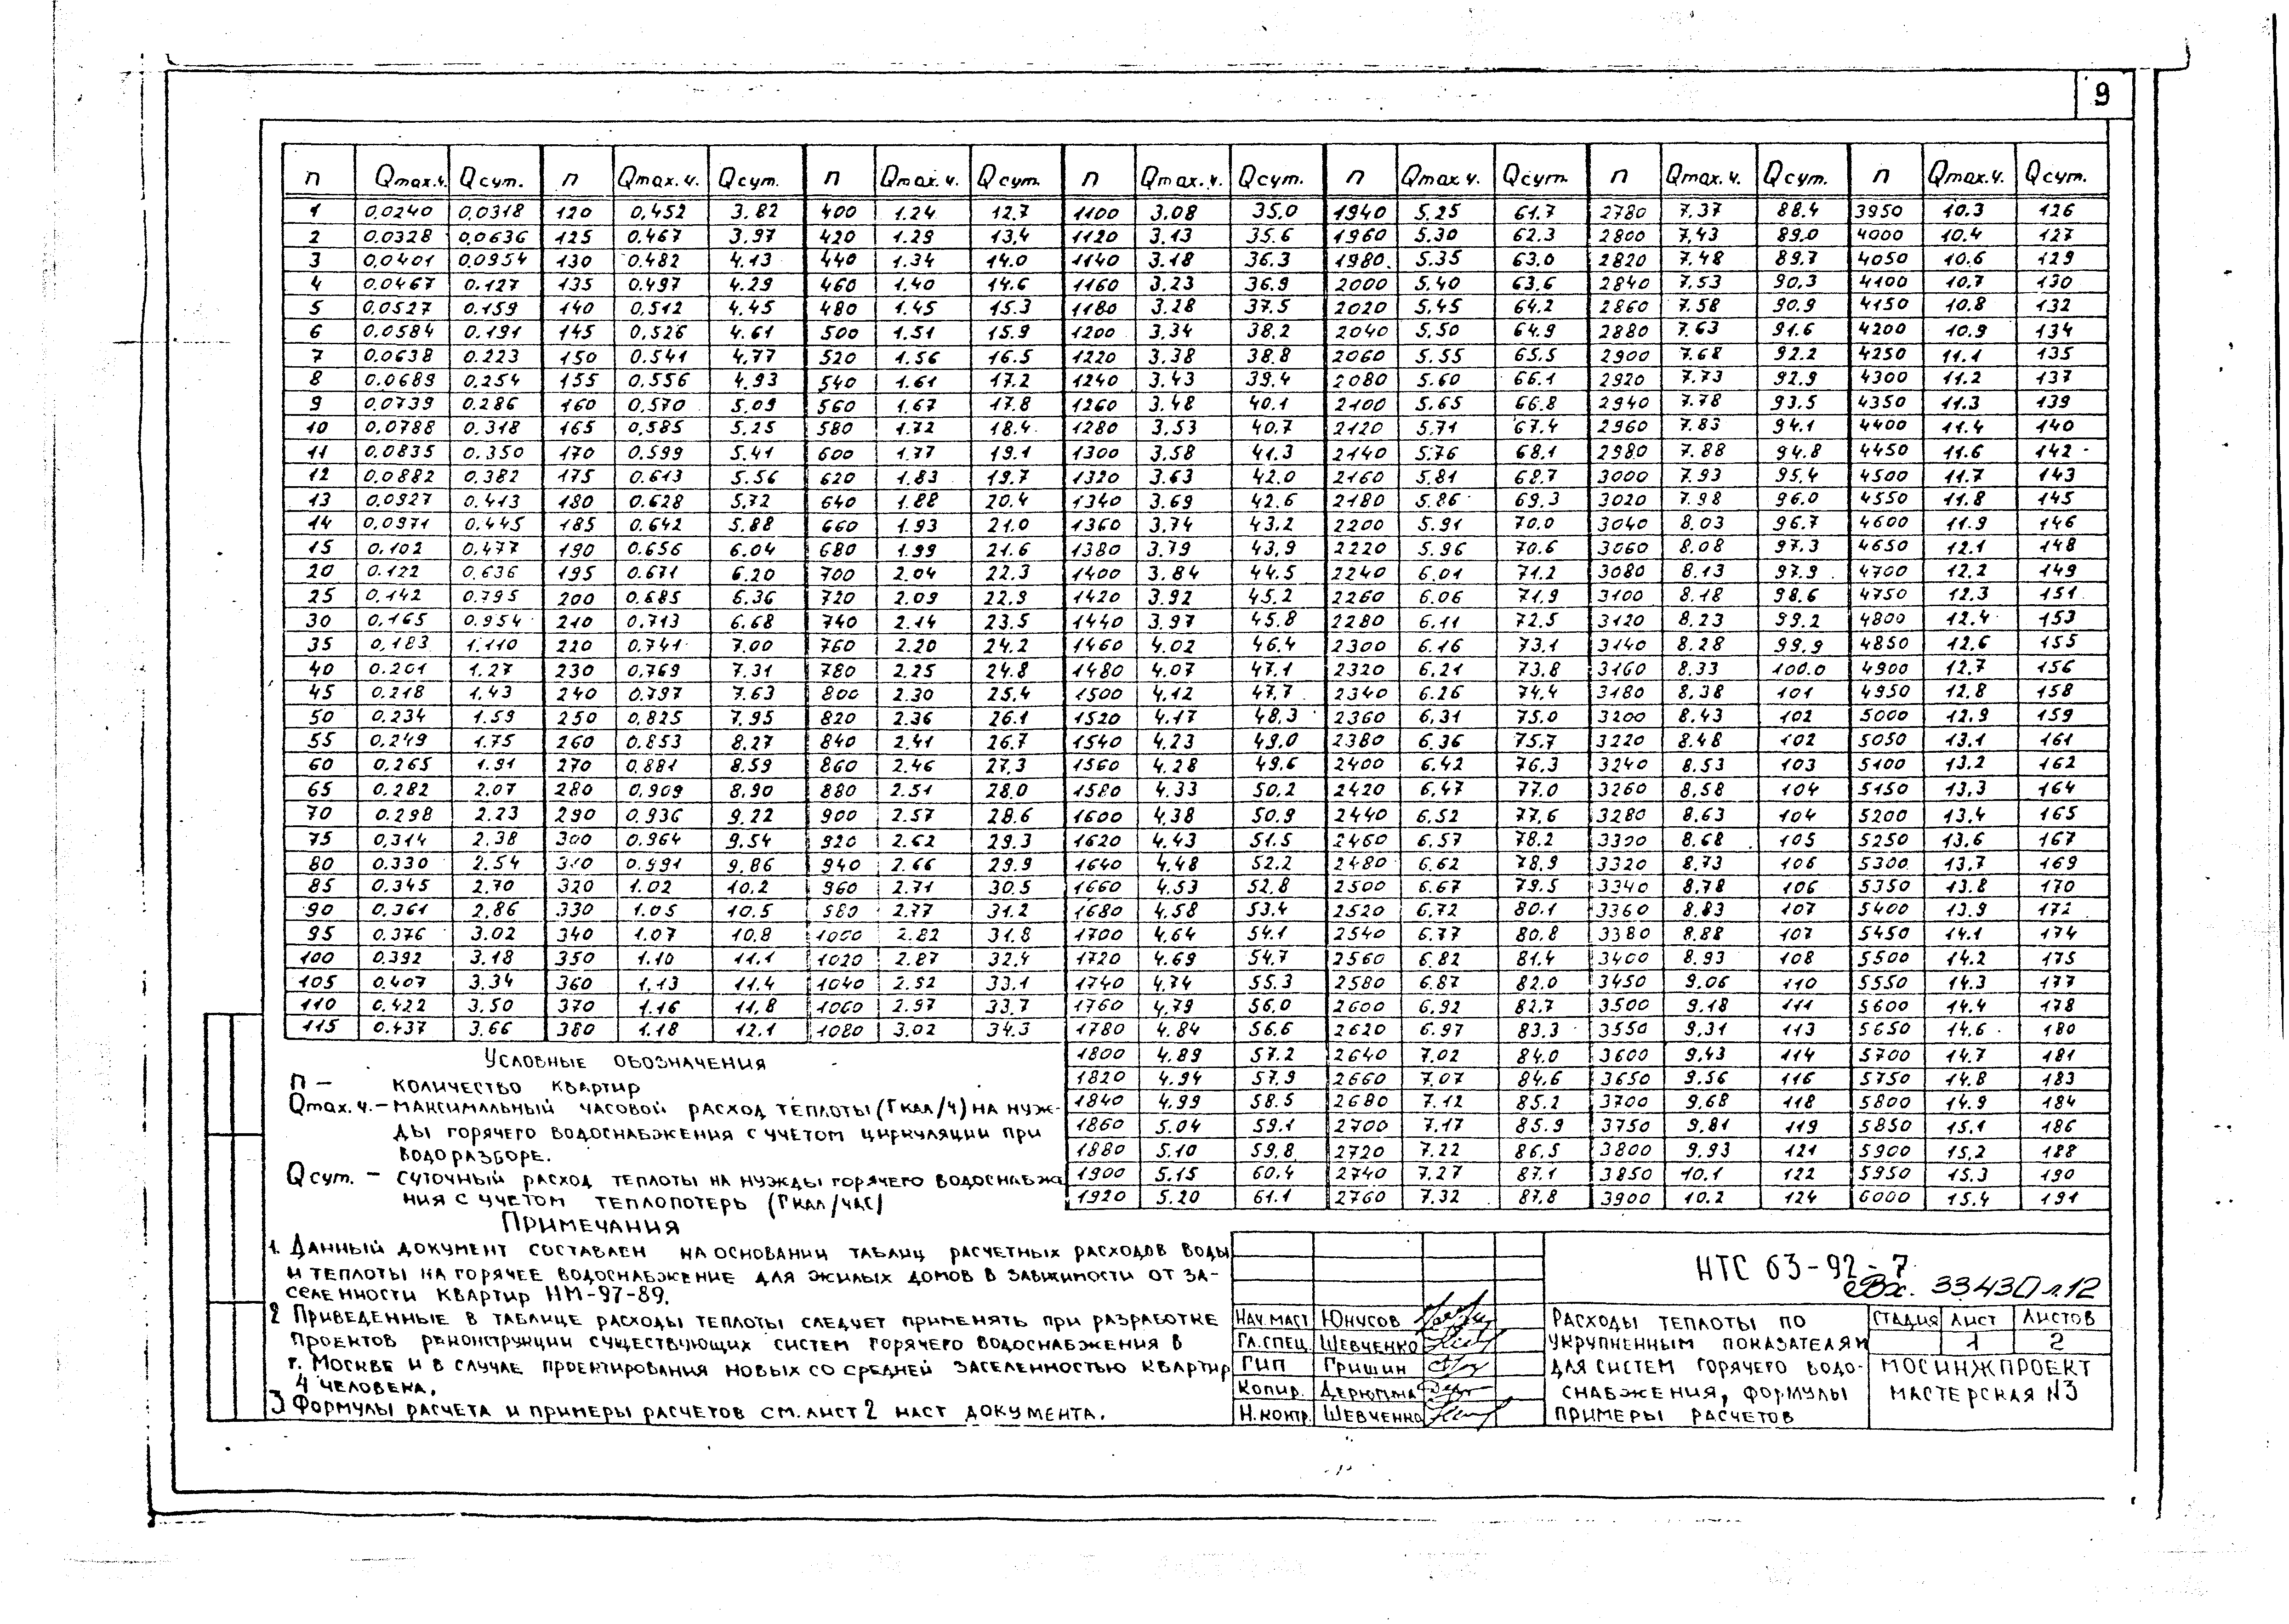 9
n Qmax.ч. Qсут. n Qmax.ч. Qсут. n Qmax.ч. Qсут. n Qmax.ч. Qсут. n Qmax ч. Qсут. n Qmax.ч. Qсут. n Qmax.ч. Qсут.
1 0,0240 0,0318 120 0,452 3.82 400 1.24 12.7 1100 3.08 35.0 1940 5.25 61.7 2780 7.37 88.4 3950 10.3 126
2 0.0328 0,0636 125 0.467 3.97 420 1.29 13,4 1120 3.13 35.6 1960 5.30 62.3 2800 7.43 89.0 4000 10.4 127
3 0,0401 0,0954 130 0.482 4.13 440 1.34 14.0 1140 3.18 36.3 1980 5.35 63.0 2820 7.48 89.7 4050 10.6 129
4 0.0467 0.127 135 0.497 4.29 460 1.40 14.6 1160 3.23 36.9 2000 5.40 63.6 2840 7.53 90.3 4100 10.7 130
5 0,0527 0.159 140 0,512 4.45 480 1.45 15.3 1180 3.28 37.5 2020 5,45 64.2 2860 7.58 90.9 4150 10.8 132
6 0.0584 0.191 145 0,526 4.61 500 1.51 15.9 1200 3,34 38.2 2040 5,50 64.9 2880 7.63 91.6 4200 10.9 134
7 0.0638 0.223 150 0.541 4.77 520 1.56 16.5 1220 3.38 38.8 2060 5.55 65.5 2900 7.68 92.2 4250 11.1 135
8 0.0689 0.254 155 0.556 4.93 540 1.61 17.2 1240 3.43 39.4 2080 5.60 66.1 2920 7.73 92.9 4300 11.2 137
9 0.0739 0.286 160 0.570 5.09 560 1.67 17.8 1260 3.48 40.1 2100 5.65 66.8 2940 7.78 93.5 4350 11.3 139
10 0,0788 0.318 165 0,585 5.25 580 1.72 18.4 1280 3.53 40.7 2120 5.71 67.4 2960 7.83 94.1 4400 11.4 140
11 0.0835 0.350 170 0.599 5.41 600 1.77 19.1 1300 3.58 41.3 2140 5.76 68.1 2980 7.88 94.8 4450 11.6 142
12 0.0882 0.382 175 0.613 5.56 620 1.83 19.7 1320 3.63 42.0 2160 5.81 68.7 3000 7.93 95.4 4500 11.7 143
13 0.0927 0.413 180 0.628 5.72 640 1.88 20.4 1340 3.69 42.6 2180 5.86 69.3 3020 7.98 96.0 4550 11.8 145
14 0,0971 0.445 185 0.642 5.88 660 1.93 21.0 1360 3.74 43.2 2200 5.91 70.0 3040 8.03 96.7 4600 11.9 146
15 0.102 0.477 190 0.656 6.04 680 1.99 21.6 1380 3.79 43,9 2220 5.96 70.6 3060 8.08 97.3 4650 12.1 148
20 0.122 0.636 195 0.671 6.20 700 2.04 22.3 1400 3.84 44.5 2240 6.01 71.2 3080 8.13 97.9 4700 12.2 149
25 0.142 0.795 200 0.685 6.36 720 2.09 22.9 1420 3.92 45.2 2260 6.06 71.9 3100 8.18 98.6 4750 12.3 151
30 0.165 0.954 210 0.713 6.68 740 2.14 23.5 1440 3.97 45.8 2280 6.11 72.5 3120 8.23 99.2 4800 12.4 153
35 0.183 1.110 220 0.741 7.00 760 2.20 24.2 1460 4.02 46.4 2300 6.16 73.1 3140 8.28 99.9 4850 12.6 155
40 0.201 1.27 230 0.769 7.31 780 2.25 24.8 1480 4.07 47.1 2320 6.21 73.8 3160 8.33 100.0 4900 12.7 156
45 0.218 1.43 240 0.797 7.63 800 2.30 25.4 1500 4.12 47.7 2340 6.26 74.4 3180 8.38 101 4950 12.8 158
50 0.234 1.59 250 0.825 7.95 820 2.36 26.1 1520 4.17 48.3 2360 6.31 75.0 3200 8.43 102 5000 12.9 159
55 0.249 1.75 260 0.853 8.27 840 2.41 26.7 1540 4.23 49.0 2380 6.36 75.7 3220 8.48 102 5050 13.1 161
60 0.265 1.91 270 0.881 8.59 860 2.46 27.3 1560 4.28 49.6 2400 6.42 76.3 3240 8.53 103 5100 13.2 162
65 0.282 2.07 280 0.909 8.90 880 2.51 28.0 1580 4.33 50.2 2420 6.47 77.0 3260 8.58 104 5150 13.3 164
70 0.298 2.23 290 0.936 9.22 900 2.57 28.6 1600 4.38 50.9 2440 6.52 77.6 3280 8.63 104 5200 13.4 165
75 0,314 2.38 300 0.964 9.54 920 2.62 29.3 1620 4.43 51.5 2460 6.57 78.2 3300 8.68 105 5250 13.6 167
80 0.330 2.54 310 0.991 9.86 940 2.66 29.9 1640 4.48 52.2 2480 6.62 78.9 3320 8.73 106 5300 13.7 169
85 0.345 2.70 320 1.02 10.2 960 2.71 30.5 1660 4.53 52.8 2500 6.67 79.5 3340 8.78 106 5350 13.8 170
90 0.361 2.86 330 1.05 10.5 980 2.77 31.2 1680 4.58 53.4 2520 6.72 80.1 3360 8.83 107 5400 13.9 172
95 0.376 3.02 340 1.07 10.8 1000 2.82 31.8 1700 4.64 54.1 2540 6.77 80.8 3380 8.88 107 5450 14.1 174
100 0.392 3.18 350 1.10 11.1 1020 2.87 32.4 1720 4.69 54.7 2560 6.82 81.4 3400 8.93 108 5500 14.2 175
105 0.407 3.34 360 1.13 11.4 1040 2.92 33.1 1740 4.74 55.3 2580 6.87 82.0 3450 9.06 110 5550 14.3 177
110 0.422 3.50 370 1.16 11,8 1060 2.97 33.7 1760 4.79 56.0 2600 6.92 82.7 3500 9.18 111 5600 14.4 178
115 0.437 3.66 380 1.18 12.1 1080 3.02 34.3 1780 4.84 56.6 2620 6.97 83.3 3550 9.31 113 5650 14.6 180
1800 4.89 57.2 2640 7.02 84.0 3600 9.43 114 5700 14.7 181
1820 4.94 57.9 2660 7.07 84.6 3650 9.56 116 5750 14.8 183
1840 4.99 58.5 2680 7.12 85.2 3700 9.68 118 5800 14.9 184
1860 5.04 59.1 2700 7.17 85.9 3750 9.81 119 5850 15.1 186
1880 5.10 59.8 2720 7.22 86.5 3800 9.93 121 5900 15.2 188
1900 5.15 60.4 2740 7.27 87.1 3850 10.1 122 5950 15.3 190
1920 5.20 61.1 2760 7.32 87.8 3900 10.2 124 6000 15.4 191
Условные обозначения
n – количество квартир
Qmax.ч. – максимальный часовой расход теплоты (Гкал/ч) на нуж-
ды горячего водоснабжения с учетом циркуляции при
водоразборе.
Qсут. – суточный расход теплоты на нужды горячего водоснабже
ния с учетом теплопотерь (Гкал/час)
Примечания
1. Данный документ составлен на основании таблиц расчетных расходов воды
и теплоты на горячее водоснабжение для жилых домов в зависимости от за-
селенности квартир НМ-97-89.
2 Приведенные в таблице расходы теплоты следует применять при разработке
проектов реконструкции существующих систем горячего водоснабжения в
г. Москве и в случае проектирования новых со средней заселенностью квартир
4 человека.
3 Формулы расчета и примеры расчетов см. лист 2 наст документа.
НТС 63-92-7
Вх. 33430 л.12
Нач.маст Юнусов
Гл.спец. Шевченко
ГИП Гришин
Копир. Дерюгина
Н.контр. Шевченко
Расходы теплоты по
укрупненным показателям
для систем горячего водо-
снабжения, формулы
примеры расчетов
стадия лист листов
1 2
МОСИНЖПРОЕКТ
мастерская N3